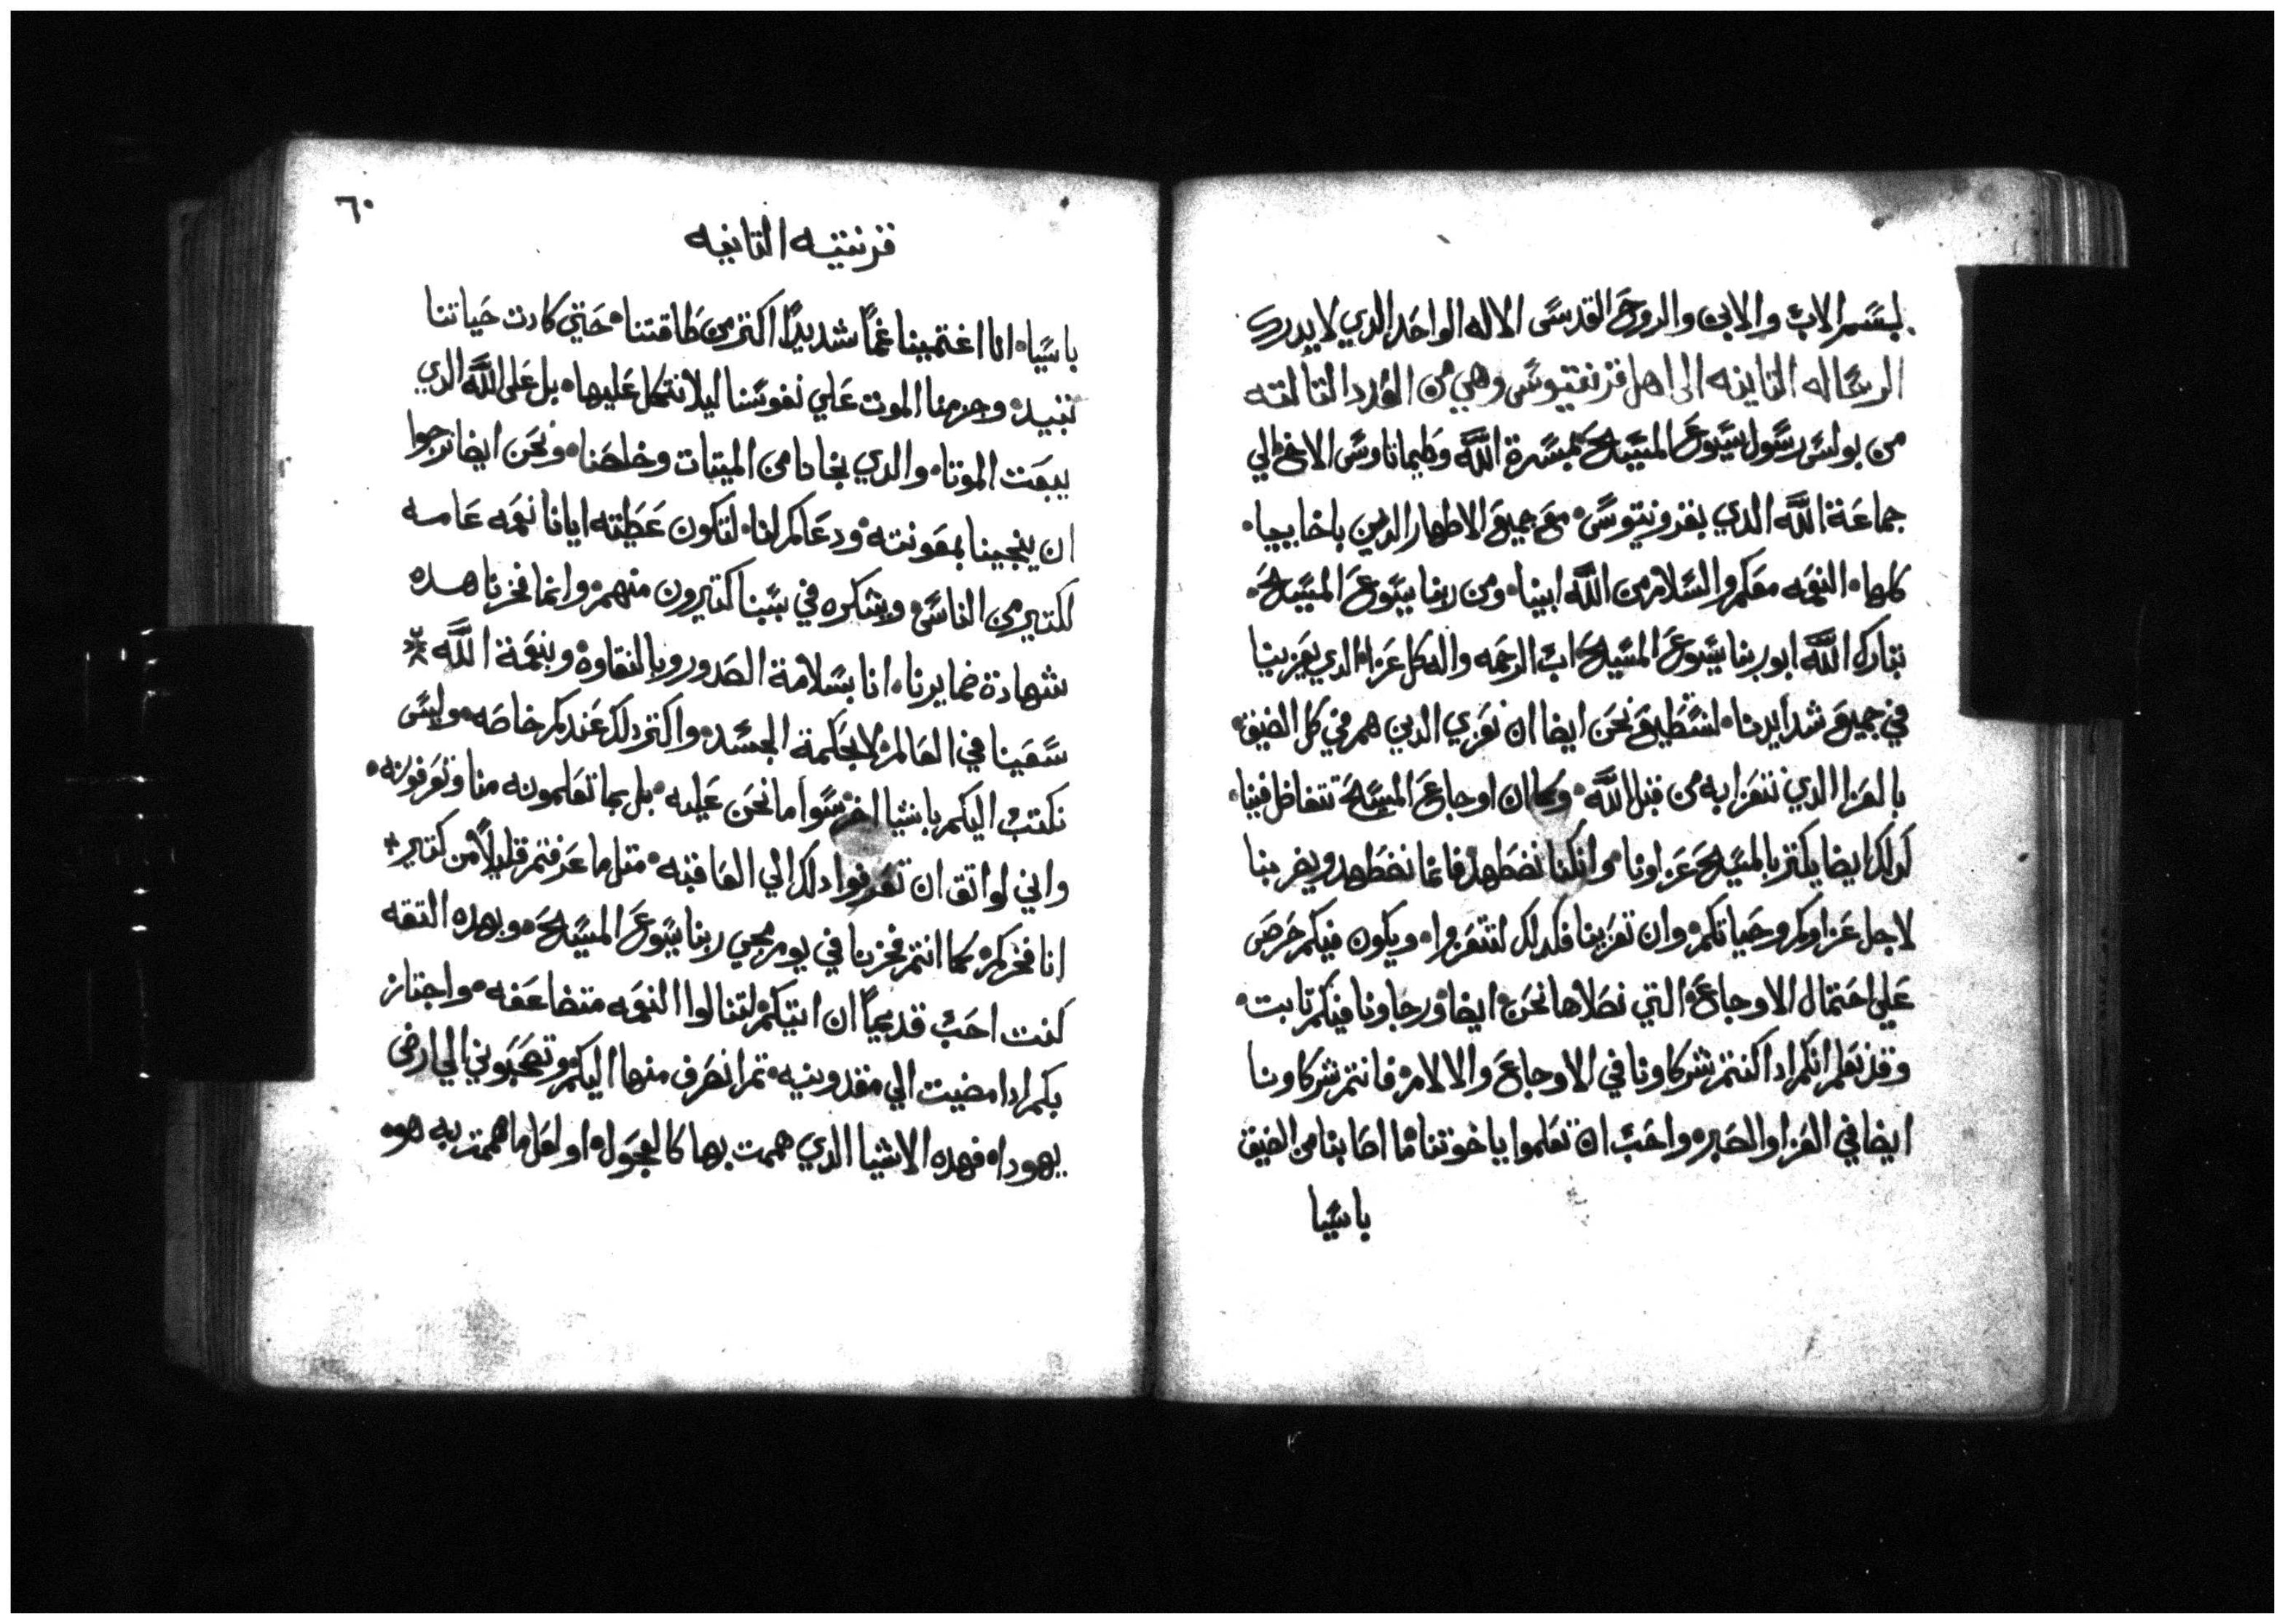 بسم الاب والابن والروح القدس الاله الواحد الدي لا يدرك
الرساله التانيه الى اهل قرنتيوس وهي من العدد التالته
من بولس رسول يسوع المسيح بمسرة الله وطيماتاوس الاخ الي
جماعة الله الدي بقرونتيوس مع جميع الاطهار الدين باخاييا
كلها النعمه معكم والسلام من الله ابينا ومن ربنا يسوع المسيح
تبارك الله ابو ربنا يسوع المسيح اب الرحمه واله كل عزا الدي يعزينا
في جميع شدايدنا لنستطيع نحن ايضا ان نعزي الدين هم في كل الضيق
بالعزا الدي نتعزا به من قبل الله وكما ان اوجاع المسيح تتفاضل فينا
كدلك ايضا يكتر بالمسيح عزاونا وان كنا نضطهد فانما نضطهد ويضر بنا
لاجل عزاوكم وحياتكم وان تعزينا فكدلك لتتعزوا ويكون فيكم حرص
علي احتمال الاوجاع التي نصلاها نحن ايضا ورجاونا فيكم تابت
وقد نعلم انكم ادا كنتم شركاونا في الاوجاع والالام فانتم شركاونا
ايضا في العزا والصبر واحب ان تعلموا ياخوتنا ما اصابنا من الضيق
باسيا
٦٠
قرنتيه التانيه
باسيا انا اغتمينا غماً شديداً اكتر من طاقتنا حتي كادت حياتنا
تبيد وجزمنا الموت علي نفوسنا ليلا نتكل عليها بل على الله الدي
يبعت الموتا والدي نجانا من الميتات وخلصنا ونحن ايضا نرجوا
ان ينجينا بمعونته ودعاكم لنا لتكون عطيته ايانا نعمه عامه
لكتير من الناس ويشكره في سببنا كتيرون منهم وانما فخرنا هده
شهادة ضمايرنا انا بسلامة الصدور وبالنقاوه وبنعمة الله
سعينا في العالم لا بحكمة الجسد واكتر دلك عندكم خاصه وليس
نكتب اليكم باشيا اخر سوا ما نحن عليه بل بما تعلمونه منا وتعرفونه
واني لواتق ان تعرفوا دلك الي العاقبه متل ما عرفتم قليلاً من كتير
انا فخركم كما انتم فخرنا في يوم مجي ربنا يسوع المسيح وبهده التقه
كنت احب قديماً ان اتيكم لتنالوا النعمه متضاعفه واجتاز
بكم ادا مضيت الي مقدونيه تم انصرف منها اليكم وتصحبوني الي ارض
يهودا فهده الاشيا الدي هممت بها كالعجول او لعل ما هممت به هو